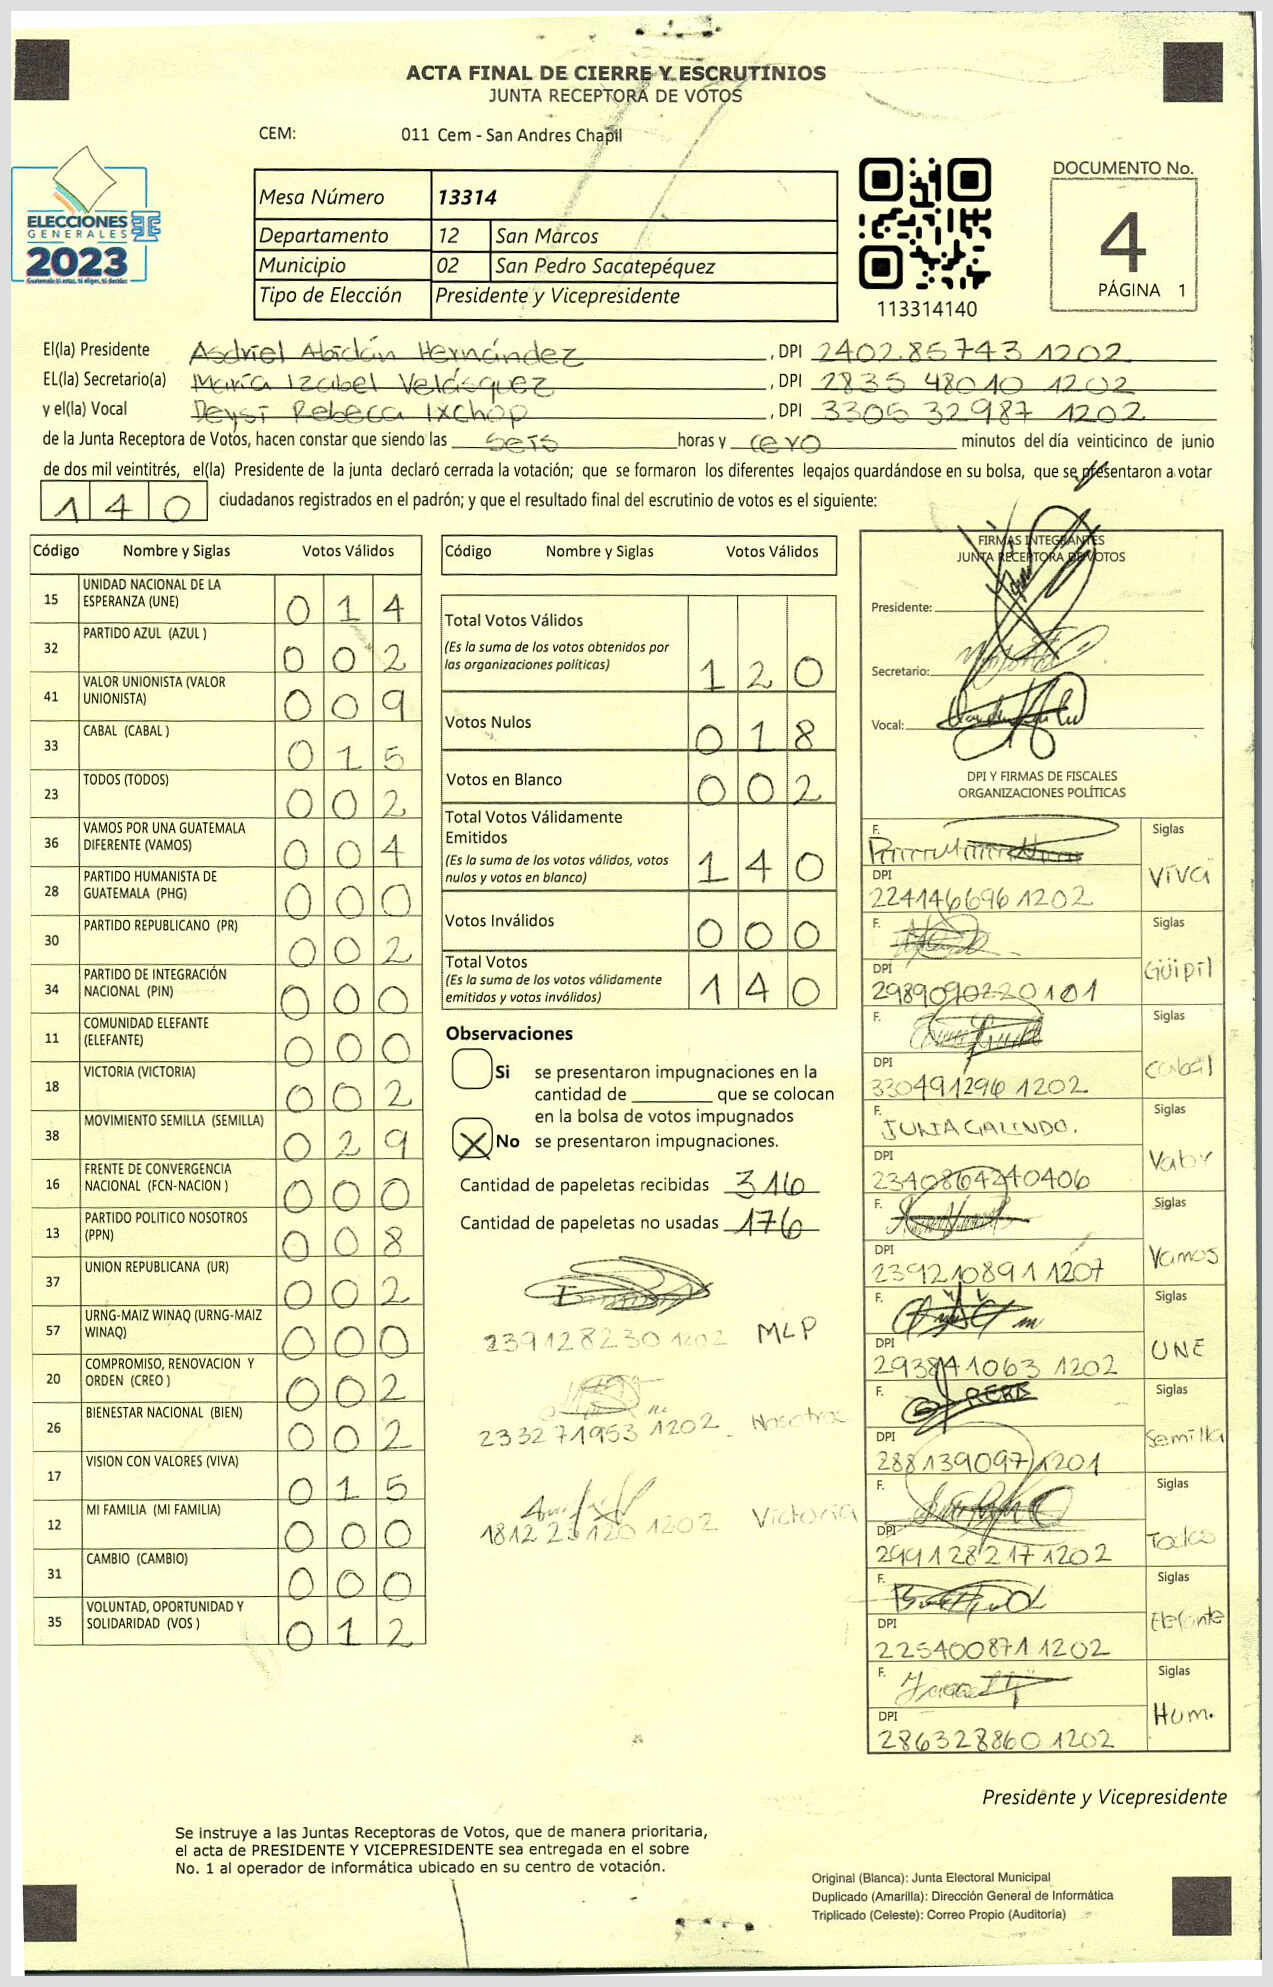 ACTA FINAL DE CIERRE Y ESCRUTINIOS
JUNTA RECEPTORA DE VOTOS
CEM: 011 Cem - San Andres Chapil
ELECCIONES
GENERALES
2023
Mesa Número 13314
Departamento 12 San Marcos
Municipio 02 San Pedro Sacatepéquez
Tipo de Elección Presidente y Vicepresidente
113314140
DOCUMENTO No.
4
PÁGINA 1
El(la) Presidente Asdriel Abidán Hernández, DPI 2402 85743 1202
EL(la) Secretario(a) María Izabel Velásquez, DPI 2835 48010 1202
y el(la) Vocal Deysi Rebeca Ixchop, DPI 3305 32987 1202
de la Junta Receptora de Votos, hacen constar que siendo las seis horas y cero minutos del día veinticinco de junio
de dos mil veintitrés, el(la) Presidente de la junta declaró cerrada la votación; que se formaron los diferentes legajos guardándose en su bolsa, que se presentaron a votar
140 ciudadanos registrados en el padrón; y que el resultado final del escrutinio de votos es el siguiente:
Código Nombre y Siglas Votos Válidos
15 UNIDAD NACIONAL DE LA ESPERANZA (UNE) 014
32 PARTIDO AZUL (AZUL ) 002
41 VALOR UNIONISTA (VALOR UNIONISTA) 009
33 CABAL (CABAL ) 015
23 TODOS (TODOS) 002
36 VAMOS POR UNA GUATEMALA DIFERENTE (VAMOS) 004
28 PARTIDO HUMANISTA DE GUATEMALA (PHG) 000
30 PARTIDO REPUBLICANO (PR) 002
34 PARTIDO DE INTEGRACIÓN NACIONAL (PIN) 000
11 COMUNIDAD ELEFANTE (ELEFANTE) 000
18 VICTORIA (VICTORIA) 002
38 MOVIMIENTO SEMILLA (SEMILLA) 029
16 FRENTE DE CONVERGENCIA NACIONAL (FCN-NACION ) 000
13 PARTIDO POLITICO NOSOTROS (PPN) 008
37 UNION REPUBLICANA (UR) 002
57 URNG-MAIZ WINAQ (URNG-MAIZ WINAQ) 000
20 COMPROMISO, RENOVACION Y ORDEN (CREO ) 002
26 BIENESTAR NACIONAL (BIEN) 002
17 VISION CON VALORES (VIVA) 015
12 MI FAMILIA (MI FAMILIA) 000
31 CAMBIO (CAMBIO) 000
35 VOLUNTAD, OPORTUNIDAD Y SOLIDARIDAD (VOS ) 012
Código Nombre y Siglas Votos Válidos
Total Votos Válidos 120
(Es la suma de los votos obtenidos por
las organizaciones políticas)
Votos Nulos 018
Votos en Blanco 002
Total Votos Válidamente
Emitidos 140
(Es la suma de los votos válidos, votos
nulos y votos en blanco)
Votos Inválidos 000
Total Votos 140
(Es la suma de los votos válidamente
emitidos y votos inválidos)
Observaciones
Si se presentaron impugnaciones en la
cantidad de ________ que se colocan
en la bolsa de votos impugnados
X No se presentaron impugnaciones.
Cantidad de papeletas recibidas 316
Cantidad de papeletas no usadas 176
239128230 1202 MLP
233271953 1202 Nosotros
1812 23120 1202 Victoria
FIRMAS INTEGRANTES
JUNTA RECEPTORA DE VOTOS
Presidente:
Secretario:
Vocal:
DPI Y FIRMAS DE FISCALES
ORGANIZACIONES POLÍTICAS
F. Siglas
DPI VIVA
224146696 1202
F. Siglas
DPI Güipil
2989090220101
F. Siglas
DPI Cabal
330491296 1202
F. JULIA GALINDO. Siglas
DPI Vabr
2340864240406
F. Siglas
DPI Vamos
239210891 1207
F. Siglas
DPI UNE
293841063 1202
F. Siglas
DPI Semilla
288139097 1201
F. Siglas
DPI Todos
299128217 1202
F. Siglas
DPI Elefante
225400871 1202
F. Siglas
DPI Hum.
286328860 1202
Presidente y Vicepresidente
Se instruye a las Juntas Receptoras de Votos, que de manera prioritaria,
el acta de PRESIDENTE Y VICEPRESIDENTE sea entregada en el sobre
No. 1 al operador de informática ubicado en su centro de votación.
Original (Blanca): Junta Electoral Municipal
Duplicado (Amarilla): Dirección General de Informática
Triplicado (Celeste): Correo Propio (Auditoría)